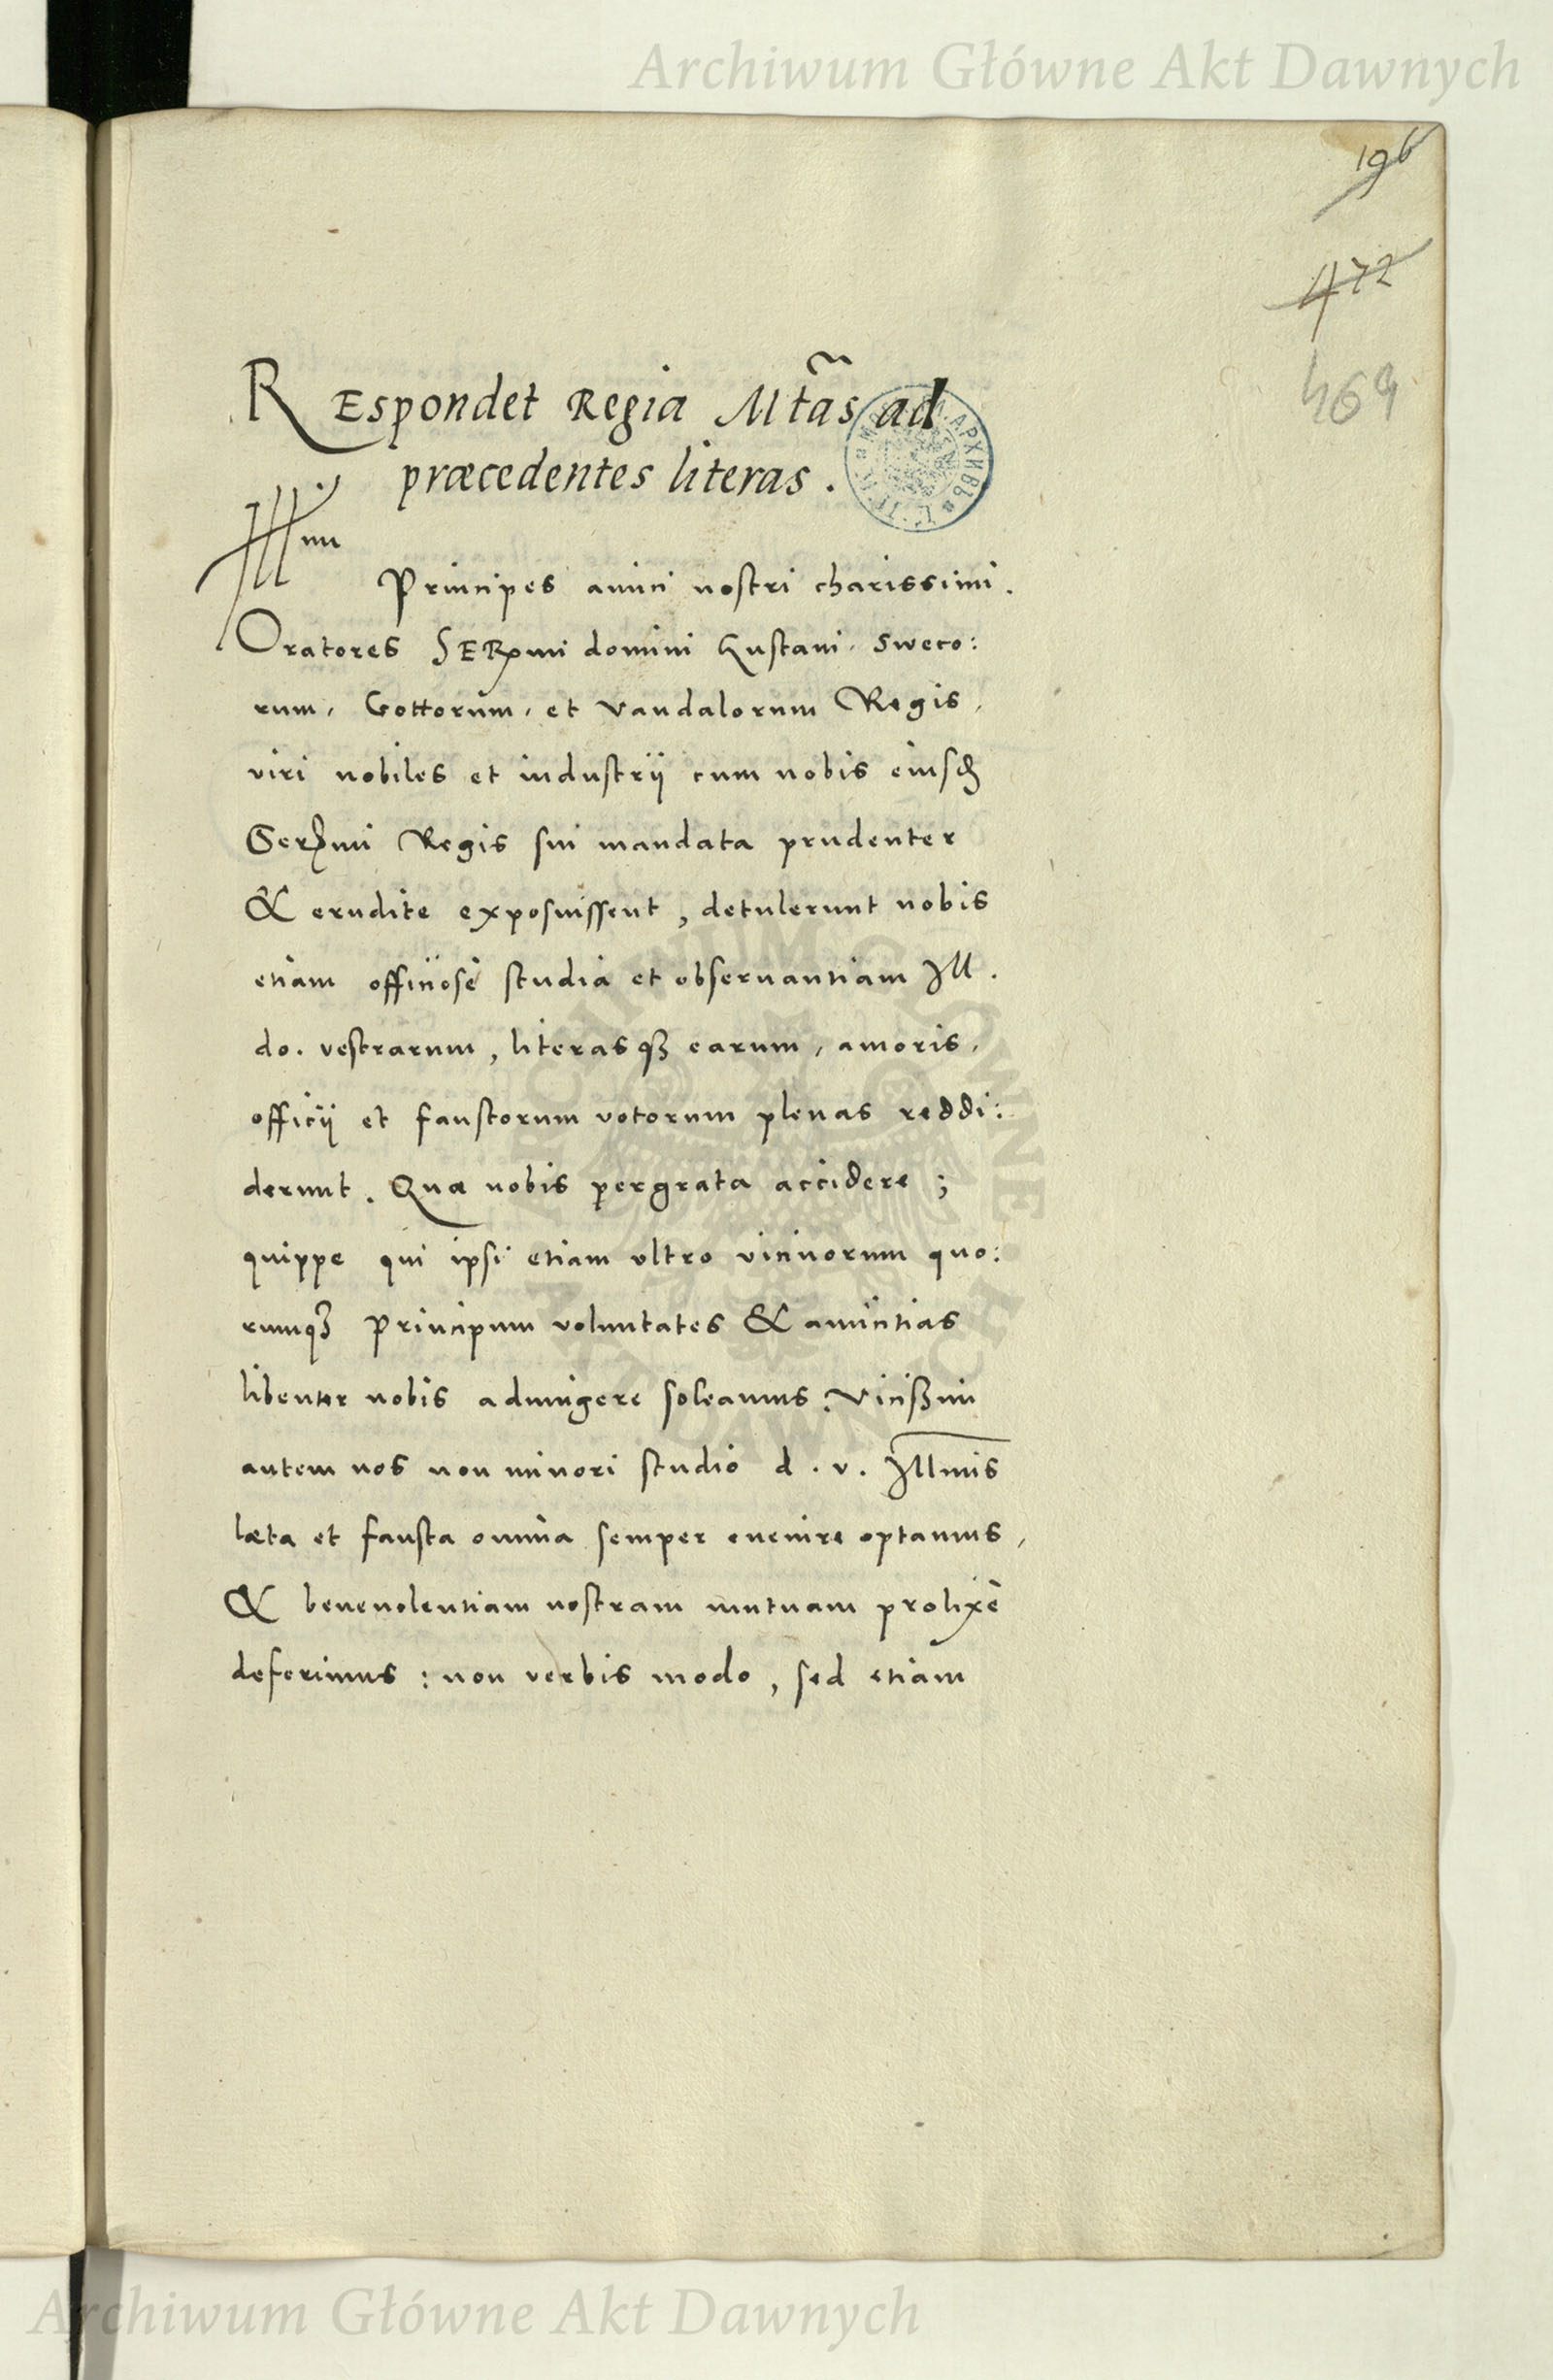 Archiwum Główne Akt Dawnych
196
472
469
REspondet Regia Mtãs ad
præcedentes literas.
Illmi
Principes amici nostri charissimi.
Oratores SERmi domini Gustaui, Sweco:
rum, Gottorum, et Vandalorum Regis,
viri nobiles et industrij cum nobis eiusd
Sermi Regis sui mandata prudenter
& erudite exposuissent, detulerunt nobis
etiam officiose studia et obseruantiam Ill.
do. vestrarum, literasq3 earum, amoris,
officij et faustorum votorum plenas reddi:
derunt. Quæ nobis pergrata accidere;
quippe qui ipsi etiam vltro vicinorum quo:
rumq3 Principum voluntates & amicitias
libenter nobis adiungere soleamus. Vicißim
autem nos non minori studio d. v. Illmis
læta et fausta omnia semper euenire optamus,
& beneuolentiam nostram mutuam prolixè
deferimus: non verbis modo, sed etiam
ARCHIWUM GŁÓWNE
AKT DAWNYCH
Archiwum Główne Akt Dawnych